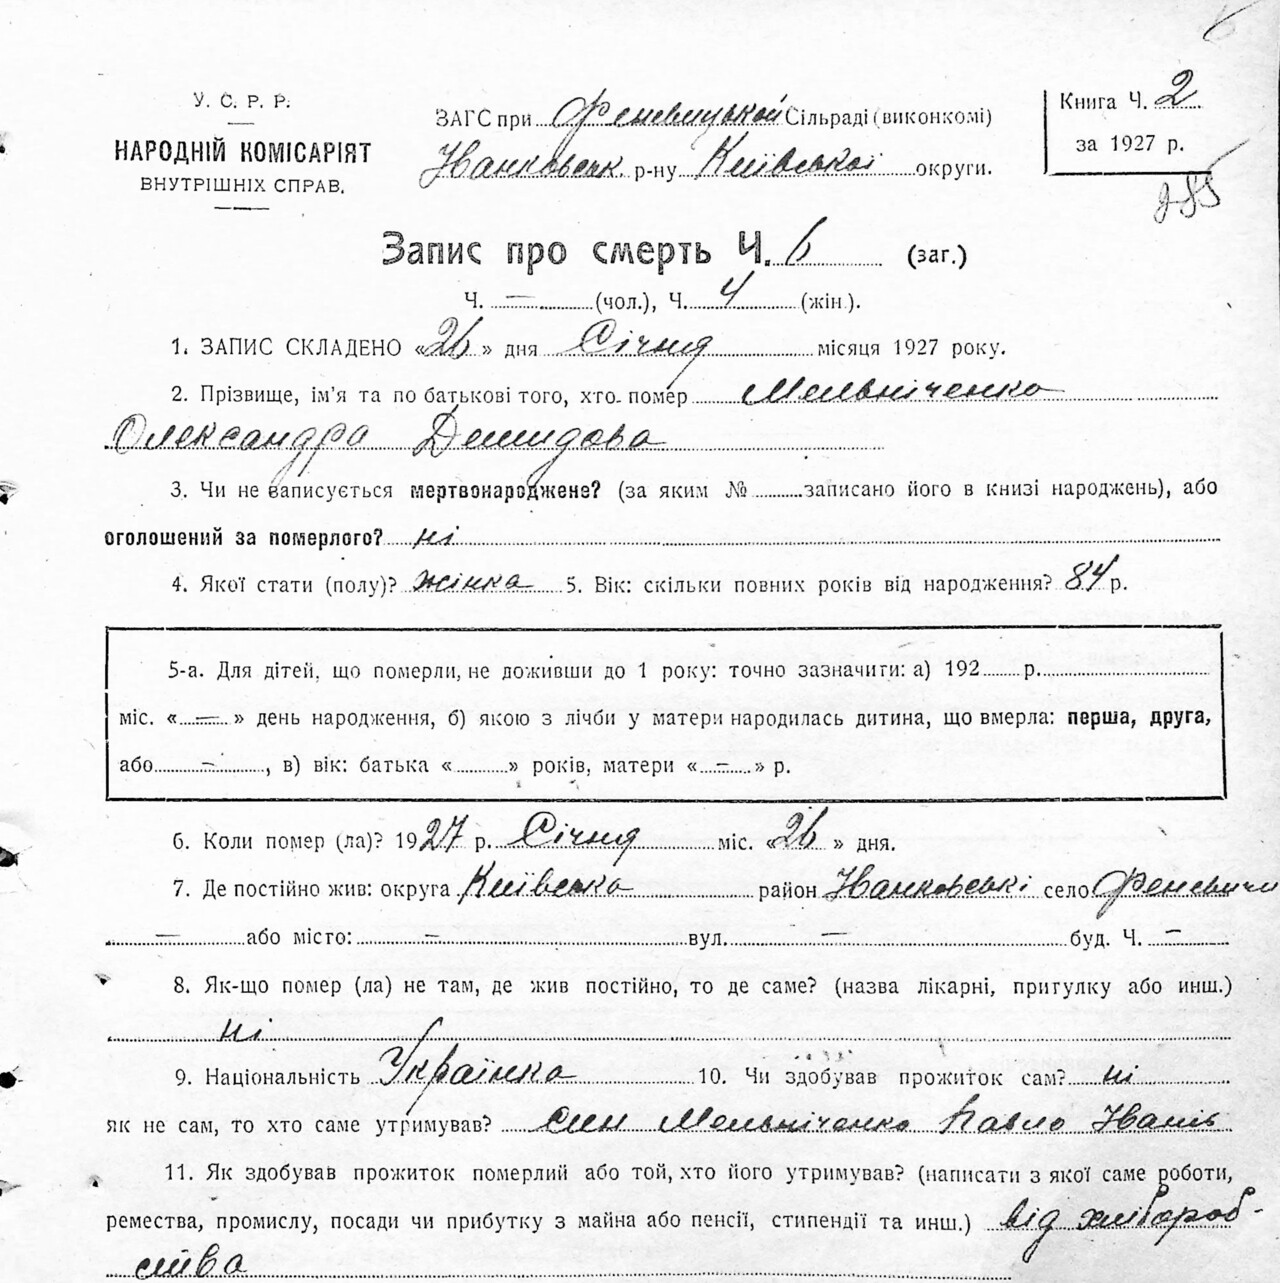 У. С. Р. Р.
НАРОДНІЙ КОМІСАРІЯТ
ВНУТРІШНІХ СПРАВ.
ЗАГС при Феневицькой Сільраді (виконкомі)
Іванковськ. р-ну Київської округи.
Книга Ч. 2
за 1927 р.
285
Запис про смерть Ч. 6 (заг.)
Ч. — (чол.), Ч. 4 (жін.).
1. ЗАПИС СКЛАДЕНО «26» дня Січня місяця 1927 року.
2. Прізвище, ім'я та по батькові того, хто помер Мельніченко
Олександра Демидова
3. Чи не записується мертвонароджене? (за яким № записано його в книзі народжень), або
оголошений за померлого? ні
4. Якої стати (полу)? жінка 5. Вік: скільки повних років від народження? 84 р.
5-а. Для дітей, що померли, не доживши до 1 року: точно зазначити: а) 192 р.
міс. «—» день народження, б) якою з лічби у матери народилась дитина, що вмерла: перша, друга,
або —, в) вік: батька « » років, матери «—» р.
6. Коли помер (ла)? 1927 р. Січня міс. «26» дня.
7. Де постійно жив: округа Київська район Іванковські село Феневичи
— або місто: — вул. — буд. Ч. —
8. Як-що помер (ла) не там, де жив постійно, то де саме? (назва лікарні, притулку або инш.)
ні
9. Національність Українка 10. Чи здобував прожиток сам? ні
як не сам, то хто саме утримував? син Мельніченко Павло Іванів
11. Як здобував прожиток померлий або той, хто його утримував? (написати з якої саме роботи,
ремества, промислу, посади чи прибутку з майна або пенсії, стипендії та инш.) від хліброб-
ства